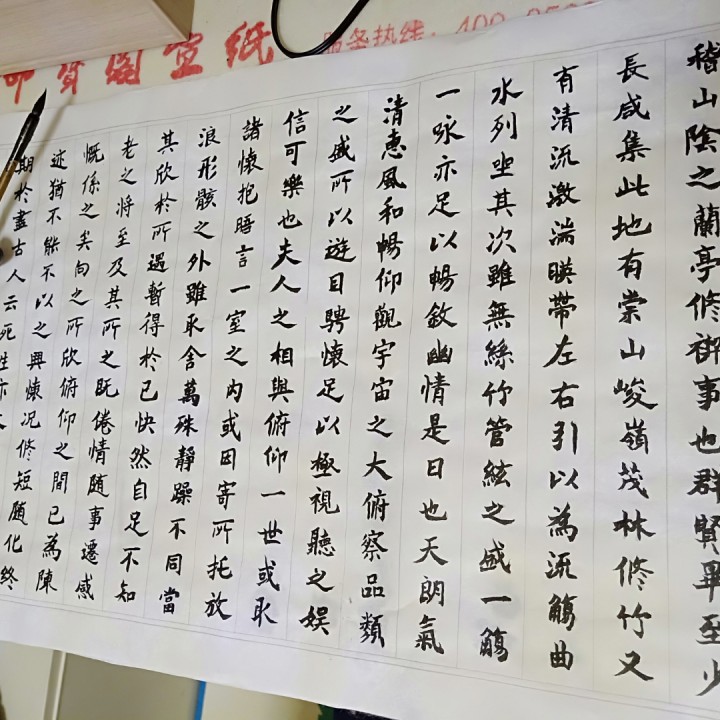 宣纸
服务热线：400
稽山陰之蘭亭修禊事也群賢畢至少
長咸集此地有崇山峻嶺茂林修竹又
有清流激湍暎帶左右引以為流觴曲
水列坐其次雖無絲竹管絃之盛一觴
一咏亦足以暢敘幽情是日也天朗氣
清惠風和暢仰觀宇宙之大俯察品類
之盛所以遊目騁懷足以極視聽之娛
信可樂也夫人之相與俯仰一世或取
諸懷抱晤言一室之內或因寄所托放
浪形骸之外雖取舍萬殊靜躁不同當
其欣於所遇暫得於己快然自足不知
老之将至及其所之既倦情随事遷感
慨係之矣向之所欣俯仰之間已為陳
迹猶不能不以之興懷况修短随化終
期於盡古人云死生亦